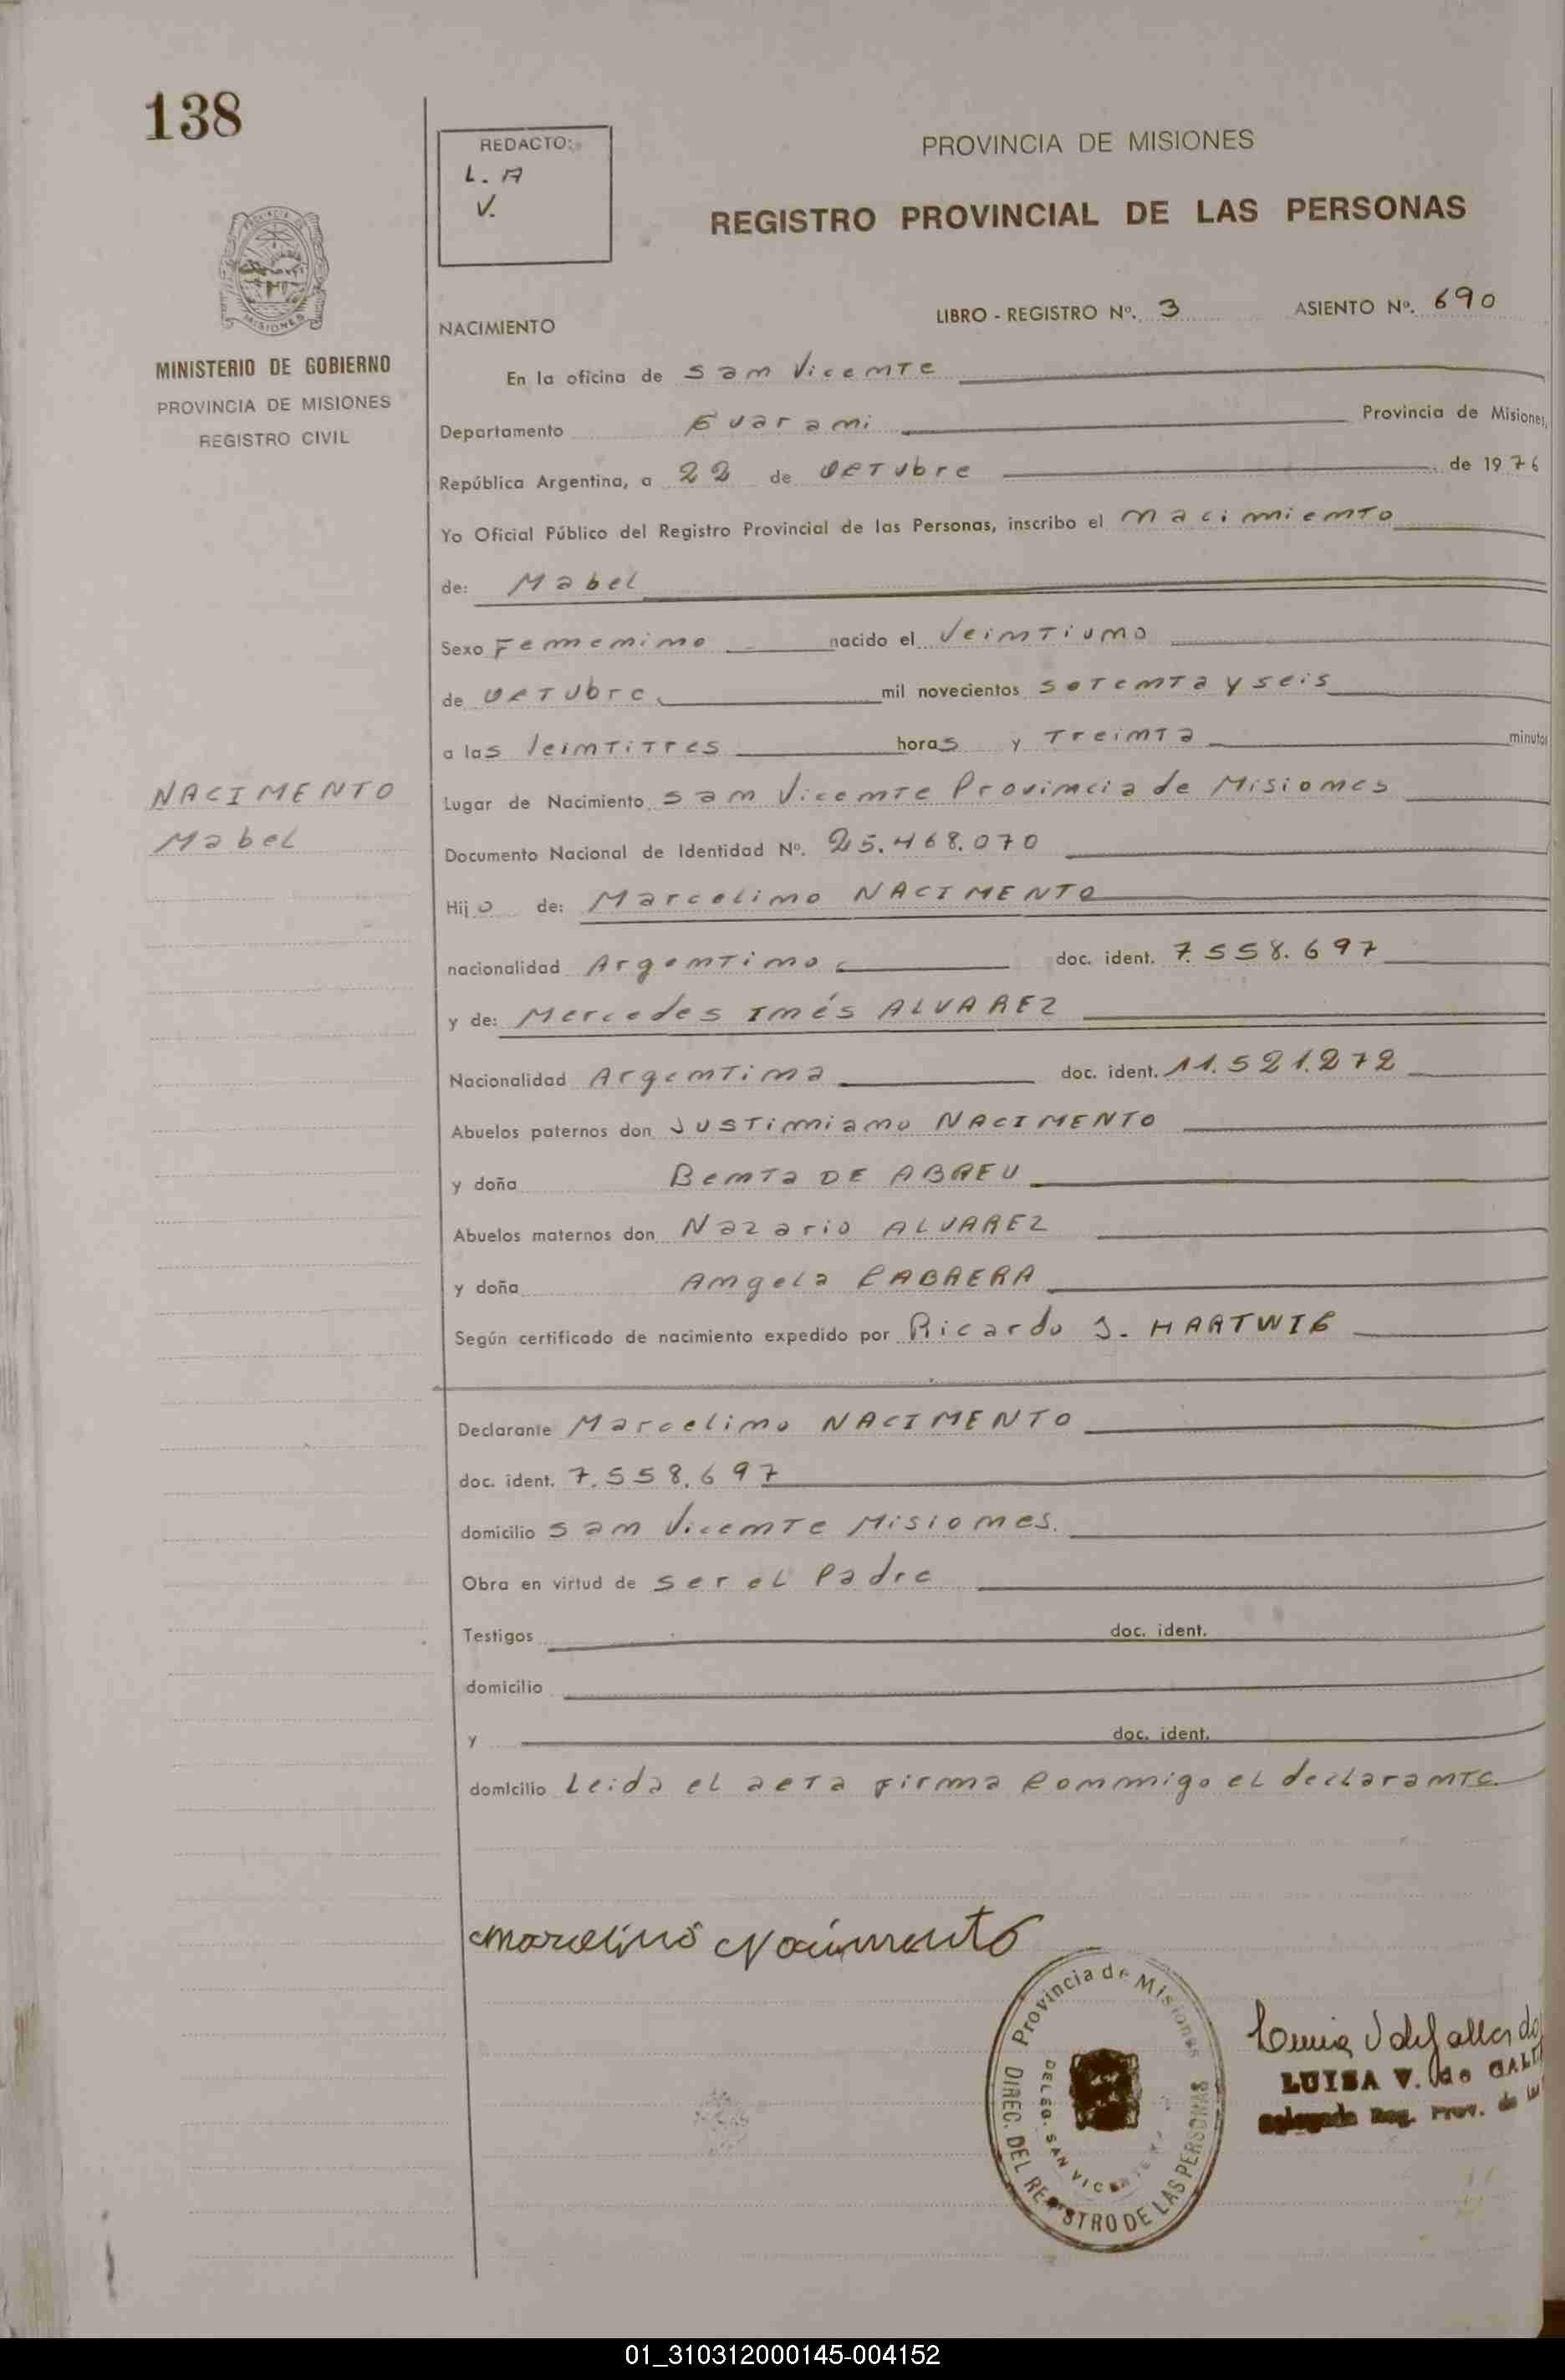 138
REDACTO:
L. A
V.
PROVINCIA DE MISIONES
REGISTRO PROVINCIAL DE LAS PERSONAS
MISIONES
MINISTERIO DE GOBIERNO
PROVINCIA DE MISIONES
REGISTRO CIVIL
NACIMIENTO LIBRO - REGISTRO Nº. 3 ASIENTO Nº. 690
En la oficina de San Vicente
Departamento Guarani Provincia de Misiones,
República Argentina, a 22 de Octubre de 1976
Yo Oficial Público del Registro Provincial de las Personas, inscribo el nacimiento
de: Mabel
Sexo Femenino nacido el Veintiuno
de Octubre mil novecientos setenta y seis
a las Veintitres horas y Treinta minutos
NACIMENTO
Mabel
Lugar de Nacimiento San Vicente Provincia de Misiones
Documento Nacional de Identidad Nº. 25.468.070
Hijo de: Marcelino NACIMENTO
nacionalidad Argentino doc. ident. 7.558.697
y de: Mercedes Inés ALVAREZ
Nacionalidad Argentina doc. ident. 11.521.272
Abuelos paternos don Justiniano NACIMENTO
y doña Benta DE ABREU
Abuelos maternos don Nazario ALVAREZ
y doña Angela CABRERA
Según certificado de nacimiento expedido por Ricardo J. HARTWIG
Declarante Marcelino NACIMENTO
doc. ident. 7.558.697
domicilio San Vicente Misiones.
Obra en virtud de ser el Padre
Testigos doc. ident.
domicilio
y doc. ident.
domicilio Leida el acta firma conmigo el declarante.
Marcelino Nacimento
Provincia de Misiones
DIREC. DEL REGISTRO DE LAS PERSONAS
DELEG. SAN VICENTE
LUISA V. de
Delegada Reg. Prov. de
01_310312000145-004152